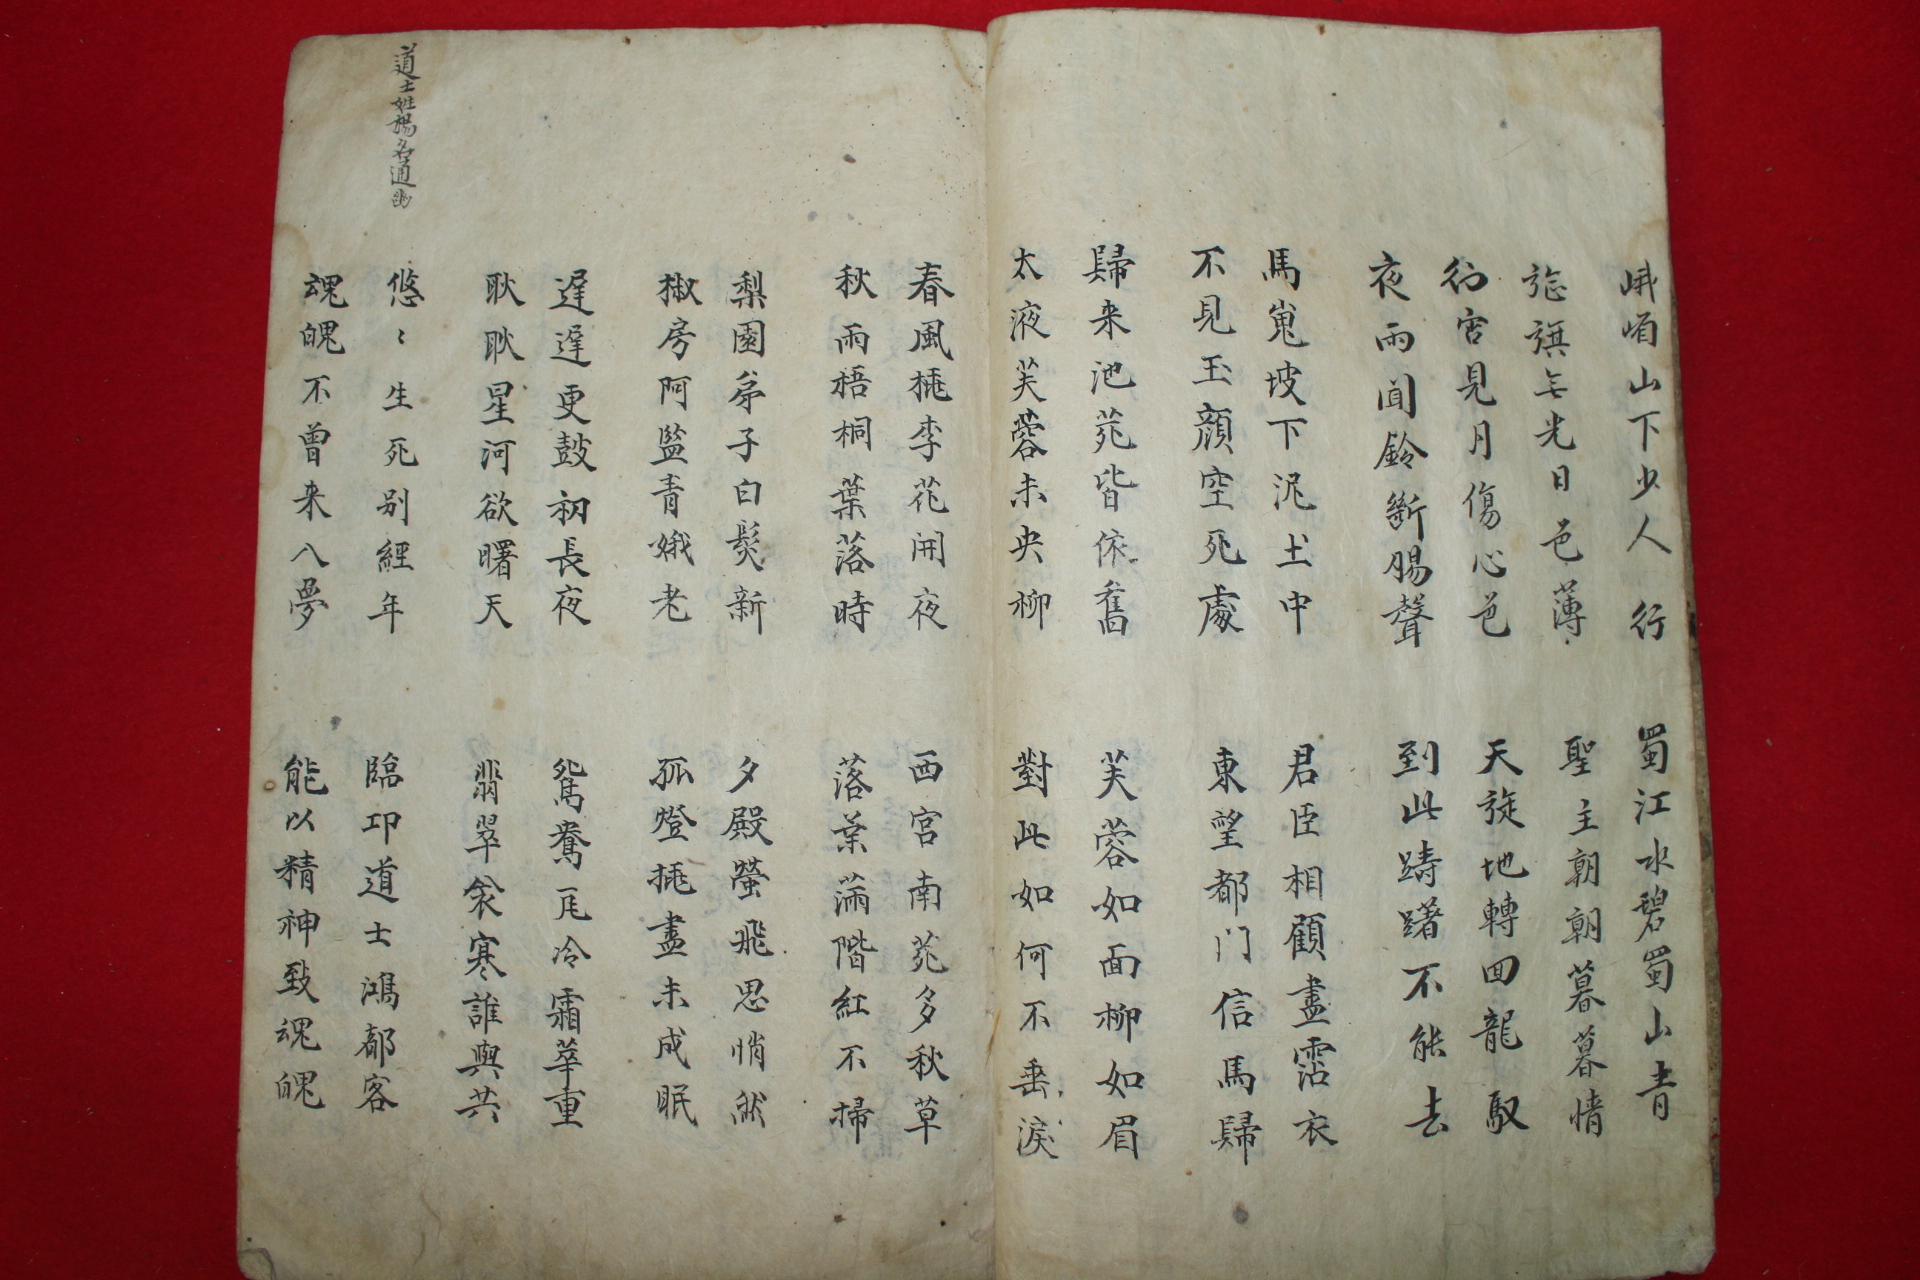 峨嵋山下少人行
旌旗无光日色薄
蜀江水碧蜀山青
聖主朝朝暮暮情
行宮見月傷心色
夜雨聞鈴斷腸聲
天旋地轉回龍馭
到此躊躇不能去
馬嵬坡下泥土中
不見玉顔空死處
君臣相顧盡霑衣
東望都門信馬歸
歸来池苑皆依舊
太液芙蓉未央柳
芙蓉如面柳如眉
對此如何不垂淚
春風桃李花開夜
秋雨梧桐葉落時
西宮南苑多秋草
落葉滿階紅不掃
梨園弟子白髮新
椒房阿監青娥老
夕殿螢飛思悄然
孤燈挑盡未成眠
遲遲更鼓初長夜
耿耿星河欲曙天
鴛鴦瓦冷霜華重
翡翠衾寒誰與共
道士姓楊名通幽
悠〻生死别經年
魂魄不曾来入夢
臨邛道士鴻都客
能以精神致魂魄